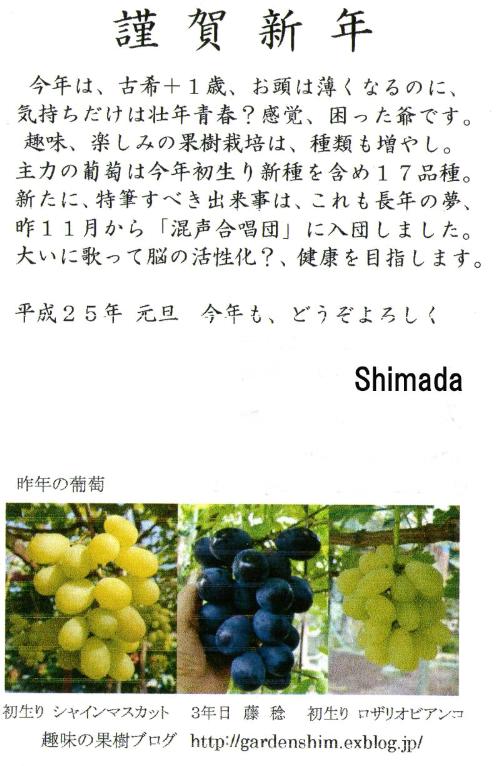 謹賀新年
今年は、古希＋１歳、お頭は薄くなるのに、
気持ちだけは壮年青春？感覚、困った爺です。
趣味、楽しみの果樹栽培は、種類も増やし。
主力の葡萄は今年初生り新種を含め１７品種。
新たに、特筆すべき出来事は、これも長年の夢、
昨１１月から「混声合唱団」に入団しました。
大いに歌って脳の活性化？、健康を目指します。
平成２５年 元旦　今年も、どうぞよろしく
Shimada
昨年の葡萄
初生り シャインマスカット　3年目 藤 稔　初生り ロザリオビアンコ
趣味の果樹ブログ http://gardenshim.exblog.jp/